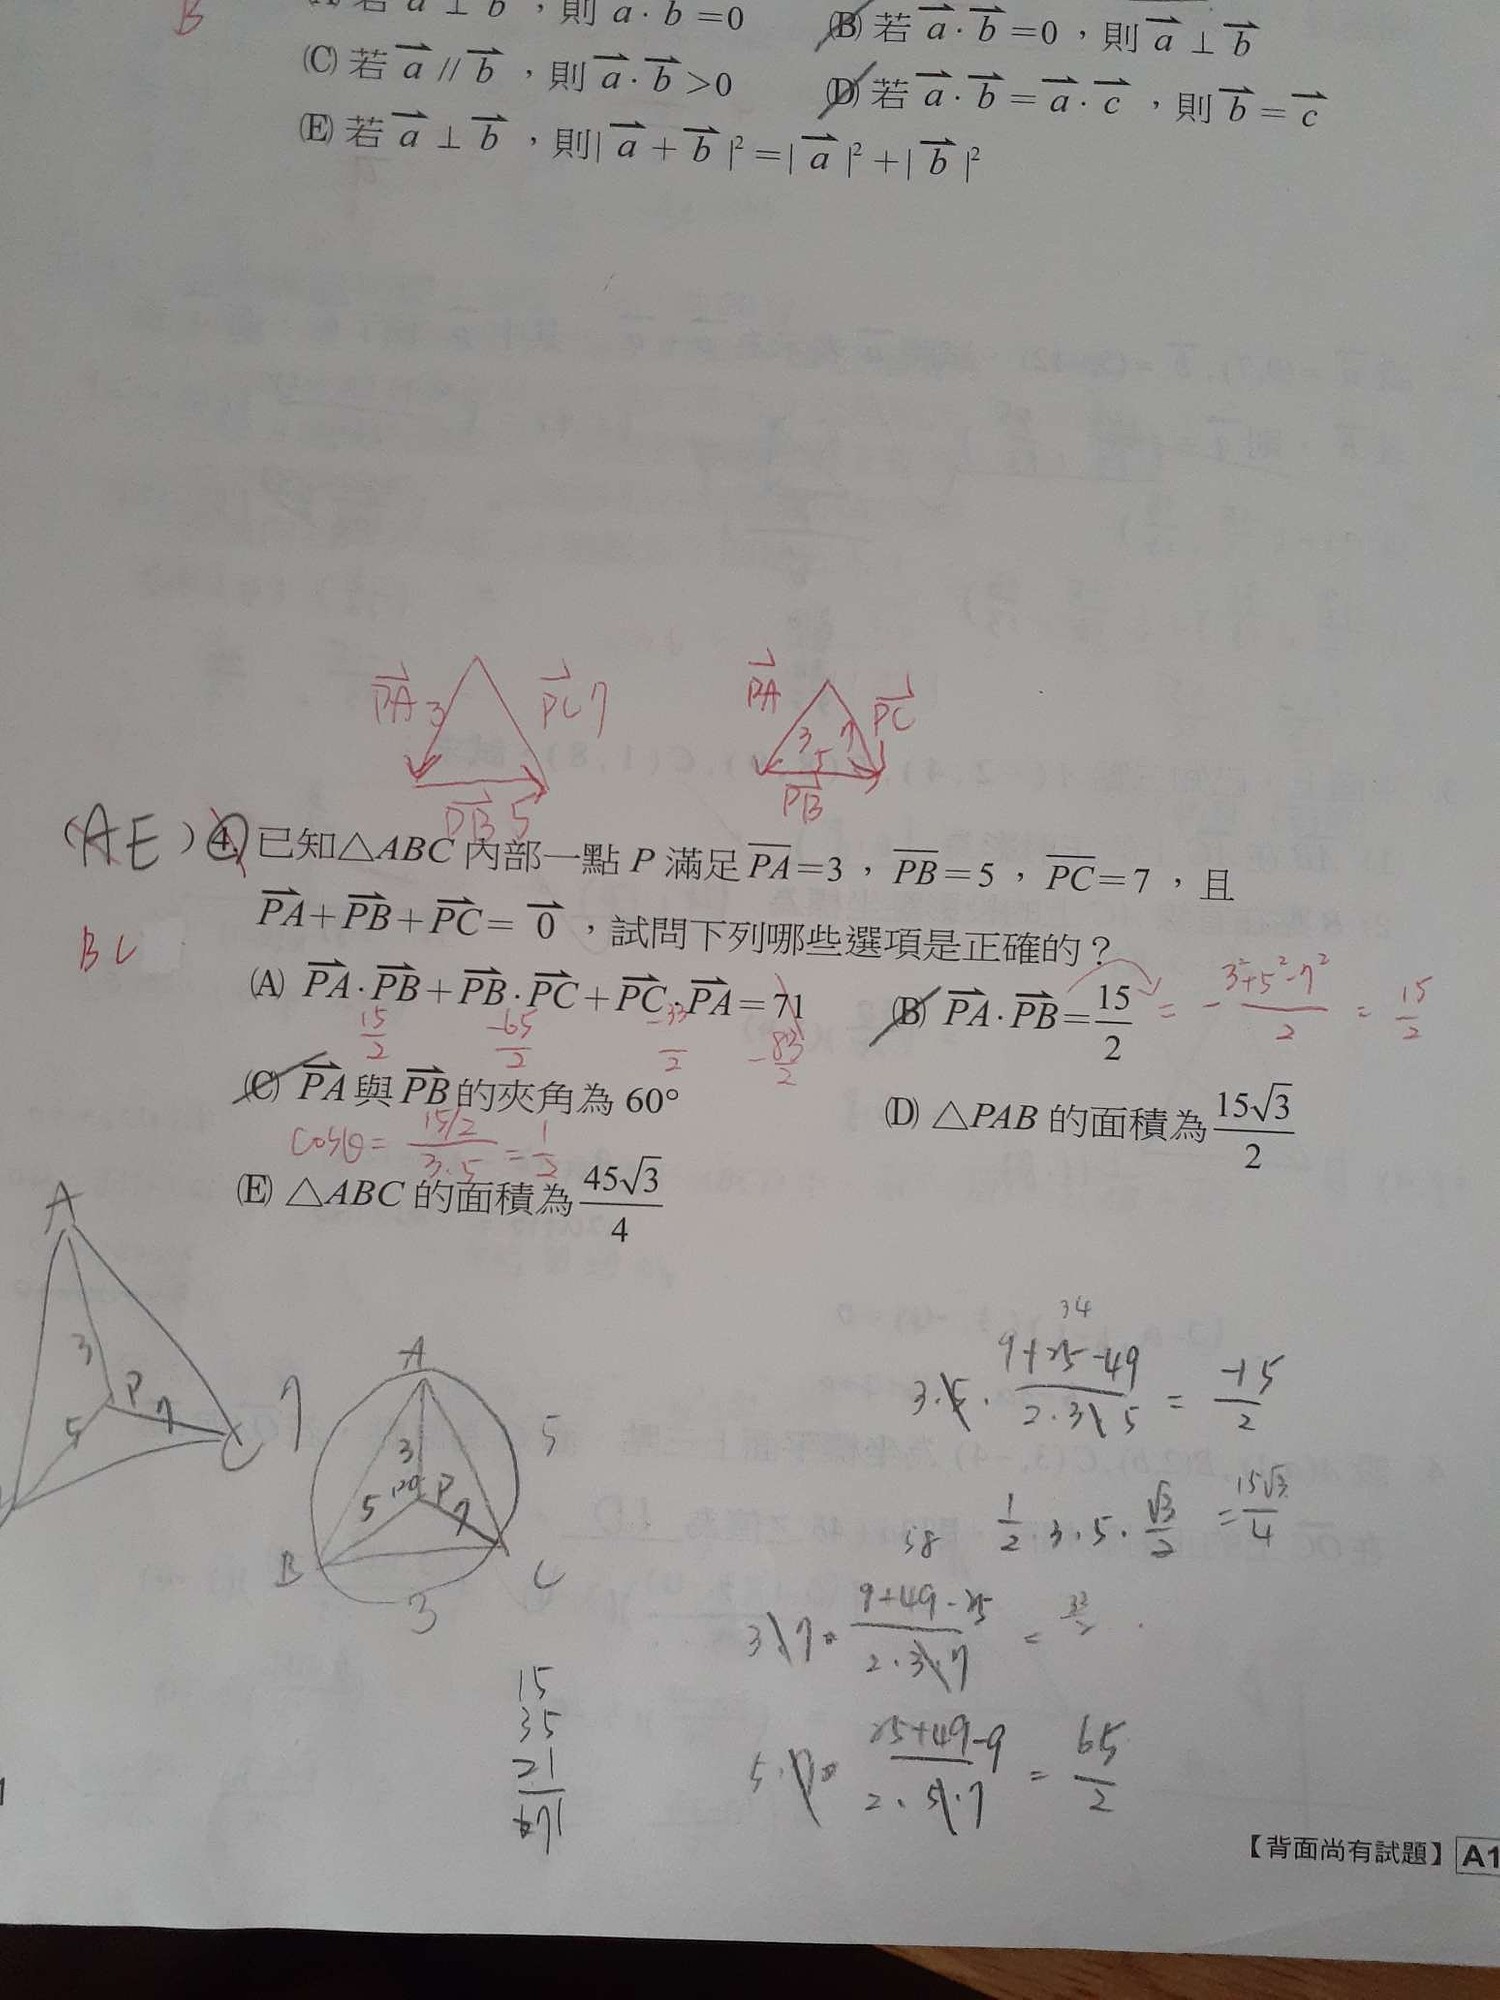 B
(A) 若 a ⊥ b ，則 a · b =0 (B) 若 a · b =0，則 a ⊥ b
(C) 若 a // b ，則 a · b >0 (D) 若 a · b = a · c ，則 b = c
(E) 若 a ⊥ b ，則| a + b |²=| a |²+| b |²
PA 3 PC 7 PA PC
3 7 5
PB 5 PB
(AE) 4. 已知△ABC 內部一點 P 滿足 PA=3，PB=5，PC=7，且
PA+PB+PC= 0 ，試問下列哪些選項是正確的？
BC
(A) PA·PB+PB·PC+PC·PA=71 (B) PA·PB=15/2 = -(3²+5²-7²)/2 = 15/2
15/2 -65/2 -33/2 -83/2
(C) PA 與 PB 的夾角為 60°
cosθ= (15/2)/(3·5) = 1/2
(D) △PAB 的面積為 15√3/2
(E) △ABC 的面積為 45√3/4
A
3
P
5 7
C
A
7 5
3
120 P
5 7
B C
3
34
3·5· (9+25-49)/(2·3·5) = -15/2
58 1/2·3·5·√3/2 = 15√3/4
3·7· (9+49-25)/(2·3·7) = 33/2
5·7· (25+49-9)/(2·5·7) = 65/2
15
35
21
71
【背面尚有試題】 A1